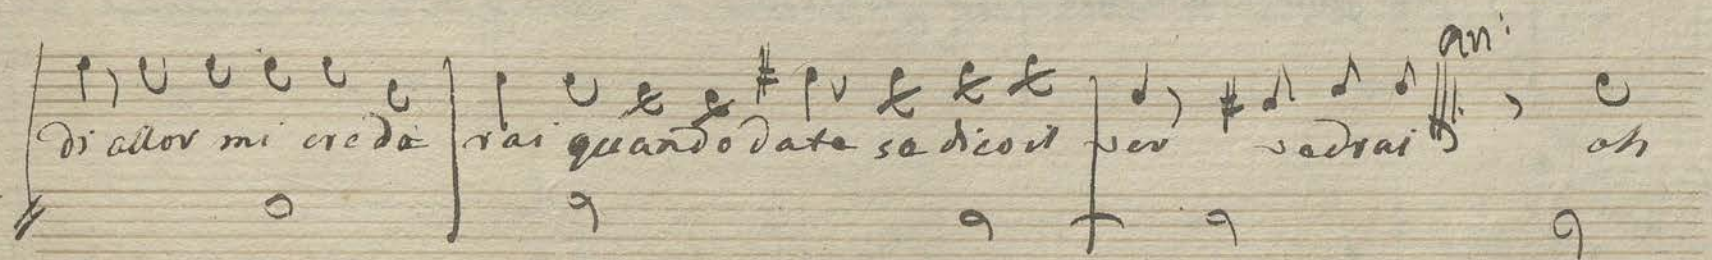 an:
di allor mi crede rai quando date se dico il ver vedrai oh